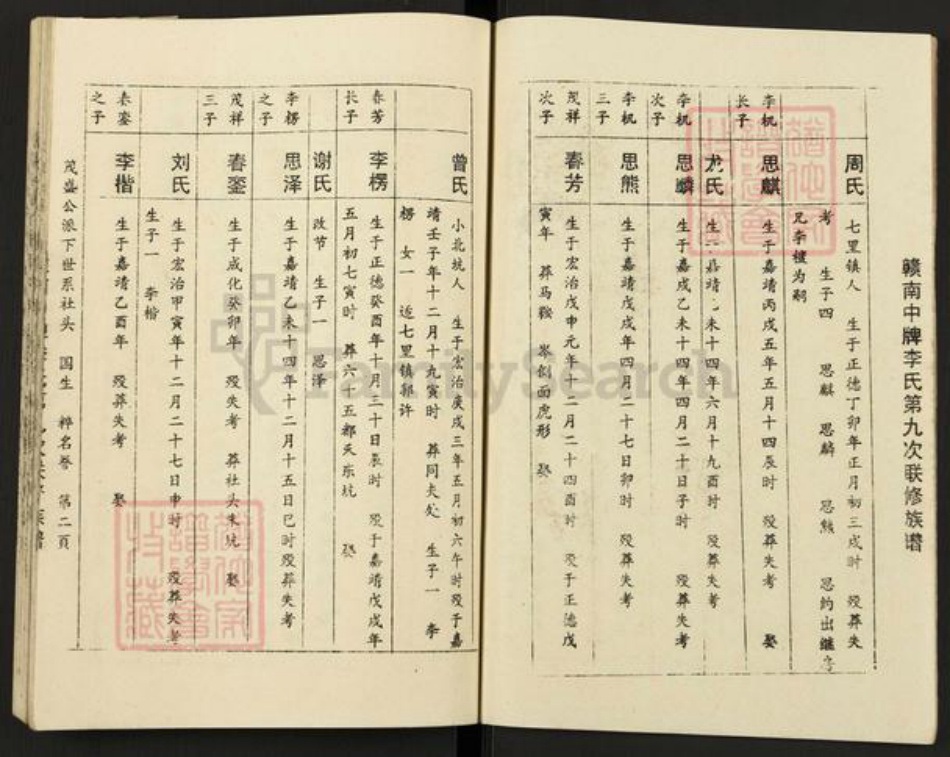 赣南中牌李氏第九次联修族谱
周氏 七里镇人 生于正德丁卯年正月初三戌时 殁葬失
考 生子四 思麒 思麟 思熊 思约出继
兄李楼为嗣
李机长子 思麒 生于嘉靖丙戌五年五月十四辰时 殁葬失考 娶
尤氏 生 嘉靖 未十四年六月十九酉时 殁葬失考
李机次子 思麟 生于嘉成乙未十四年四月二十日子时 殁葬失考
李机三子 思熊 生于嘉靖戊戌年四月二十七日卯时 殁葬失考
茂祥次子 春芳 生于宏治戊申元年十二月二十四酉时 殁于正德戊
寅年 葬马鞍 岑倒面虎形 娶
曾氏 小北坑人 生于宏治庚戌三年五月初六午时殁于嘉
靖壬子年十二月十九寅时 葬同夫处 生子一 李
楞 女一 适七里镇郭许
春芳长子 李楞 生于正德癸酉年十月三十日辰时 殁于嘉靖戊戌年
五月初七寅时 葬六十五都天东坑 娶
谢氏 改节 生子一 思泽
李楞之子 思泽 生于嘉靖乙未十四年十二月十五日巳时殁葬失考
茂祥三子 春銮 生于成化癸卯年 殁失考 葬社头朱坑 娶
刘氏 生于宏治甲寅年十二月二十七日申时 殁葬失考
生子一 李楷
春銮之子 李楷 生于嘉靖乙酉年 殁葬失考 娶
茂盛公派下世系社头 国生 粹名誊 第二页
FamilySearch